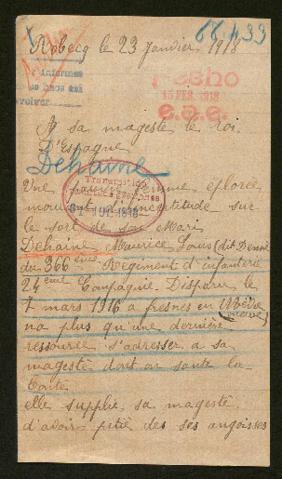 68.433
Robecq le 23 Janvier 1918
l'informer
Despacho
15 FEB. 1918
e.a.e.
A sa mageste le roi
d'Espagne
Dehaine
Une pauvre femme éplorée
mourant d'incertitude sur
le sort de son Mari
Dehaine, Maurice Louis (dit Désiré)
du 366ème Regiment d'infanterie
24ème Compagnie. Disparu le
7 mars 1916 a fresnes en Woëvre
(Meuse)
na plus qu'une dernière
ressource s'adresser a sa
mageste dont on vante la
bonté
elle supplie, sa mageste,
d'avoir pitié des ses angoisses